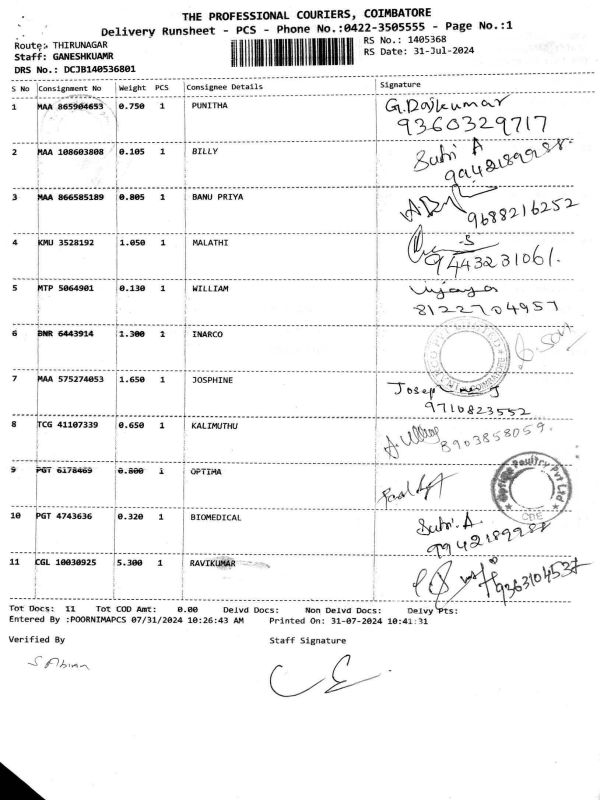 THE PROFESSIONAL COURIERS, COIMBATORE
Delivery Runsheet - PCS - Phone No.:0422-3505555 - Page No.:1
Route: THIRUNAGAR RS No.: 1405368
Staff: GANESHKUAMR RS Date: 31-Jul-2024
DRS No.: DCJB140536801
S No Consignment No Weight PCS Consignee Details Signature
1 MAA 865904653 0.750 1 PUNITHA G. Rajkumar
9360329717
2 MAA 108603808 0.105 1 BILLY
9942189988.
3 MAA 866585189 0.805 1 BANU PRIYA
9688216252
4 KMU 3528192 1.050 1 MALATHI
9443231061.
5 MTP 5064901 0.130 1 WILLIAM Vijaya
8122704957
6 BNR 6443914 1.300 1 INARCO
7 MAA 575274053 1.650 1 JOSPHINE
9710823552
8 TCG 41107339 0.650 1 KALIMUTHU
8903858059.
9 PGT 6178469 0.800 1 OPTIMA
Poultry Pvt Ltd
CBE
10 PGT 4743636 0.320 1 BIOMEDICAL
11 CGL 10030925 5.300 1 RAVIKUMAR
9363104537
Tot Docs: 11 Tot COD Amt: 0.00 Delvd Docs: Non Delvd Docs: Delvy Pts:
Entered By :POORNIMAPCS 07/31/2024 10:26:43 AM Printed On: 31-07-2024 10:41:31
Verified By Staff Signature